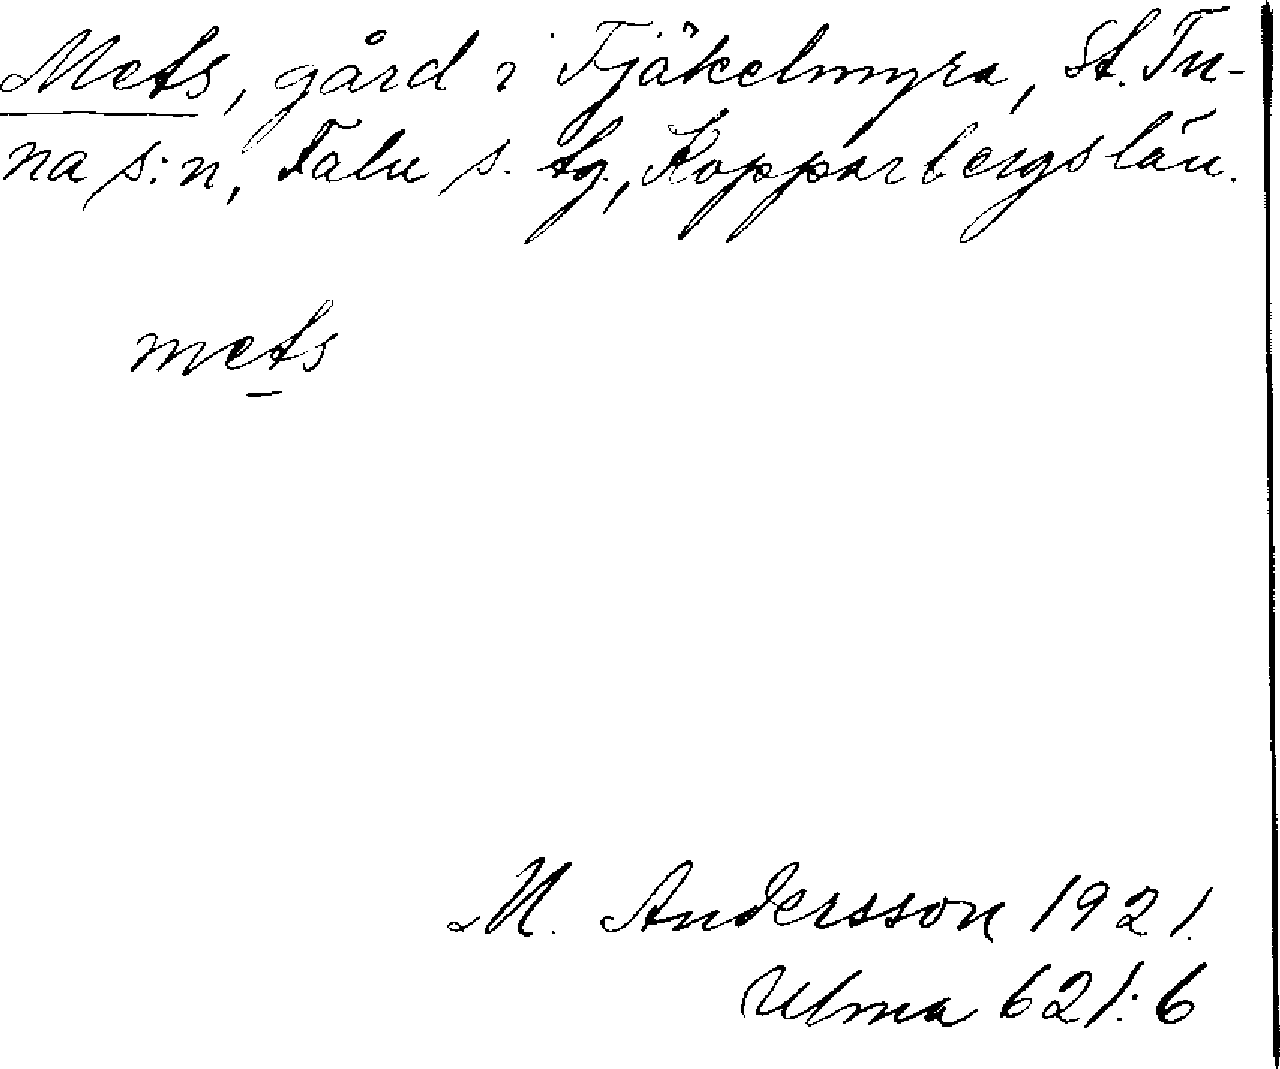 Mets, gård i Tjäkelmyra, St. Tu-
na s:n, Falu s. tg., Kopparbergs län.
mets
M. Andersson 1921.
Ulma 621:6